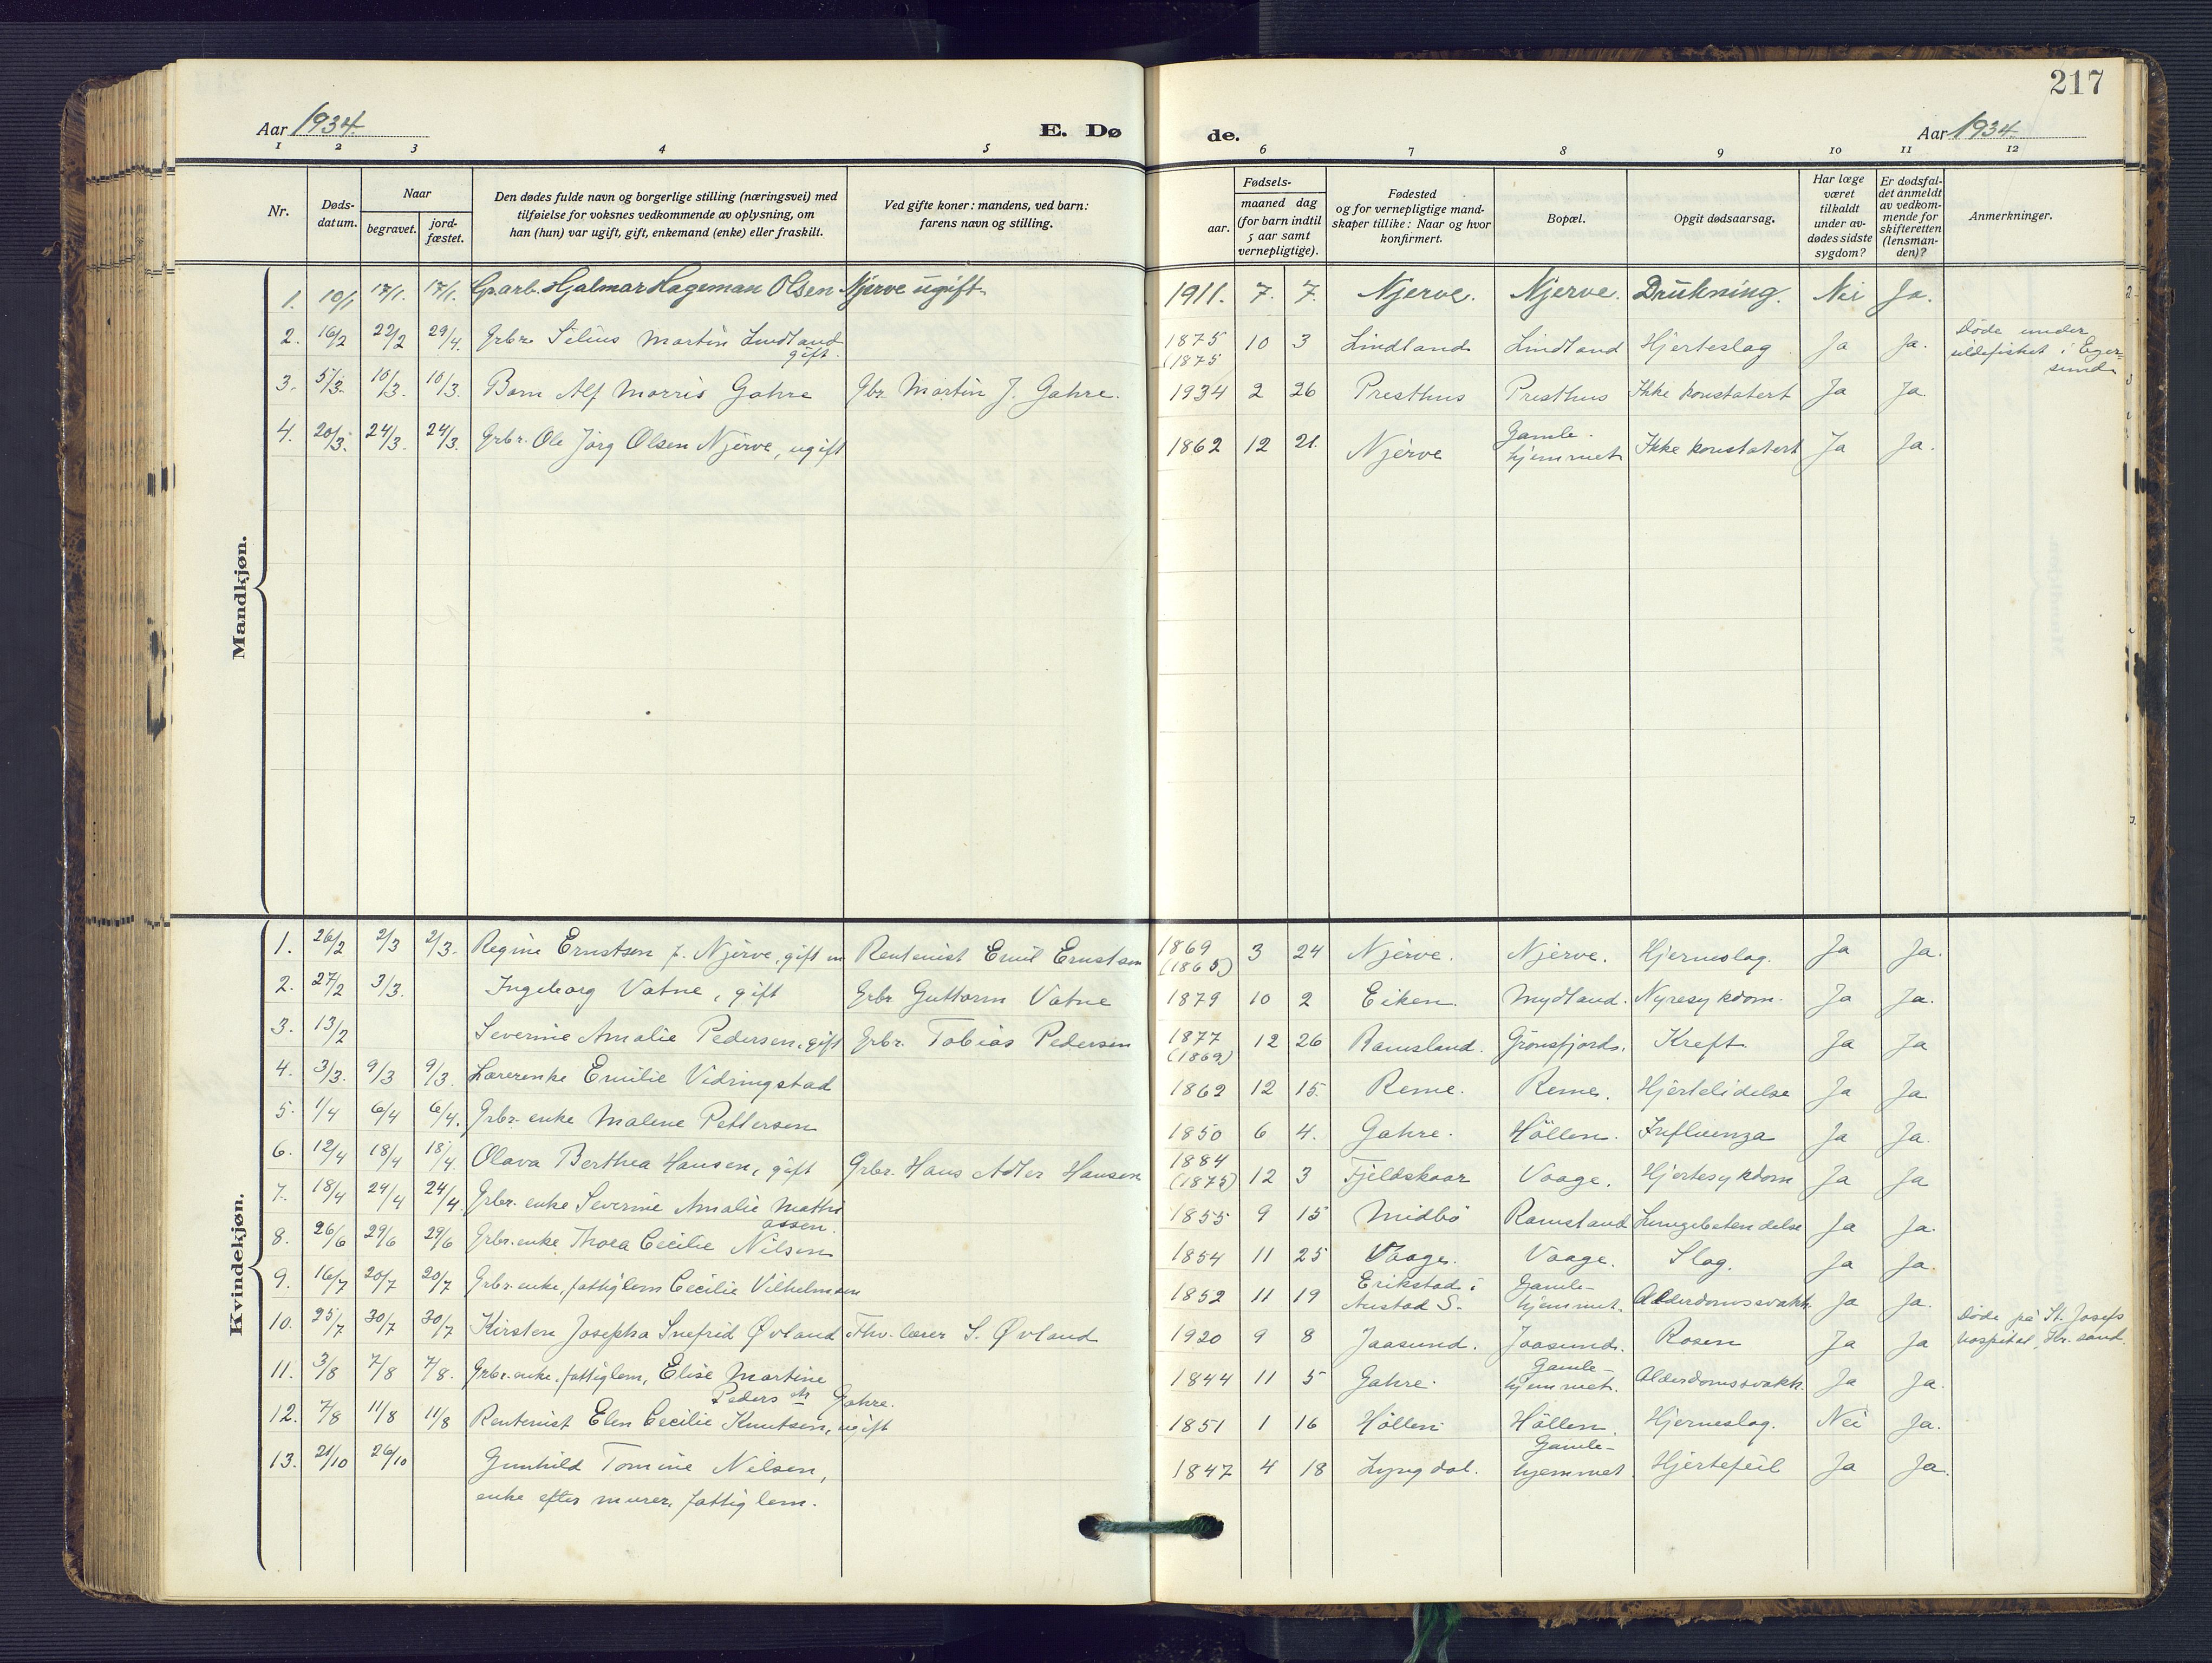 217
Aar 1934.
E. Dø
de.
Aar 1934.
1 2 3 4 5 6 7 8 9 10 11 12
Nr.
Døds-
datum.
Naar
begravet.
jord-
fæstet.
Den dødes fulde navn og borgerlige stilling (næringsvei) med
tilføielse for voksnes vedkommende av oplysning, om
han (hun) var ugift, gift, enkemand (enke) eller fraskilt.
Ved gifte koner: mandens, ved barn:
farens navn og stilling.
Fødsels-
aar.
maaned dag
(for barn indtil
5 aar samt
vernepligtige).
Fødested
og for vernepligtige mand-
skaper tillike: Naar og hvor
konfirmert.
Bopæl.
Opgit dødsaarsag.
Har læge
været
tilkaldt
under av-
dødes sidste
sygdom?
Er dødsfal-
det anmeldt
av vedkom-
mende for
skifteretten
(lensman-
den)?
Anmerkninger.
Mandkjøn.
1. 10/1 17/1. 17/1. Gr.arb. Hjalmar Hageman Olsen Njerve ugift. 1911. 7. 7. Njerve. Njerve. Drukning. Nei Ja.
2. 16/2 22/2 29/4. Grbr. Selius Martin Lindland 1875 10 3 Lindland Lindland Hjerteslag Ja Ja. Døde under
gift. (1875 sildefisket i Eger=
sund
3. 5/3. 10/3. 10/3. Barn Alf Morris Gahre Gbr. Martin J. Gahre. 1934 2 26 Presthus Presthus Ikke konstatert Ja Ja.
4. 20/3. 24/3. 24/3. Grbr. Ole Jörg Olsen Njerve, ugift 1862 12 21. Njerve Gamle-
hjemmet Ikke konstatert Ja Ja.
Kvindekjøn.
1. 26/2 2/3 2/3. Regine Ernstsen f. Njerve, gift m Rentenist Emil Ernstsen 1869 3 24 Njerve. Njerve. Hjerneslag. Ja Ja.
(1865)
2. 27/2 3/3. Ingeborg Vatne, gift Grbr. Guttorm Vatne 1879 10 2 Eiken. Mydland. Nyresykdom. Ja Ja.
3. 13/2 Severine Amalie Pedersen, gift Grbr. Tobias Pedersen 1877 12 26 Ramsland. Grönsfjord. Kreft Ja Ja
(1869)
4. 3/3. 9/3 9/3. Lærerenke Emilie Vidringstad 1862 12 15. Reme. Reme. Hjertelidelse Ja Ja
5. 1/4 6/4 6/4. Grbr. enke Malene Pettersen 1850 6 4. Gahre. Höllen. Influenza Ja Ja.
6. 12/4 18/4 18/4. Olava Berthea Hansen, gift Grbr. Hans Adler Hansen 1884 12 3 Fjeldskaar Vaage. Hjertesykdom Ja Ja
(1875)
7. 18/4 24/4 24/4. Grbr. enke Severine Amalie Mathi 1855 9 15 Midbö Ramsland Lungebetendelse Ja Ja.
assen.
8. 26/6 29/6 29/6 Grbr. enke Thora Cecilie Nilsen 1854 11 25 Vaage. Vaage. Slag. Ja Ja.
9. 16/7 20/7 20/7 Grbr. enke, fattiglem Cecilie Vilhelmsen 1852 11 19 Erikstad i Gamle-
Austad S. hjemmet. Alderdomssvakh. Ja Ja.
10. 25/7 30/7 30/7 Kirsten Josepha Snefrid Øvland Fhv. lærer S. Øvland 1920 9 8 Jaasund. Jaasund. Rosen Ja Ja Döde på St. Josefs
hospital, Kr. sand.
11. 3/8 7/8 7/8. Grbr. enke, fattiglem, Elise Martine 1844 11 5 Gahre. Gamle-
hjemmet. Alderdomssvakh. Ja Ja.
Peders dtr Gahre.
12. 7/8 11/8 11/8 Rentenist Elen Cecilie Knutsen, ugift 1851 1 16 Höllen Höllen. Hjerneslag. Nei Ja.
13. 21/10 26/10 Gunhild Tomine Nilsen, 1847 4 18 Lyngdal. Gamle-
hjemmet. Hjertefeil Ja Ja.
enke efter murer, fattiglem.